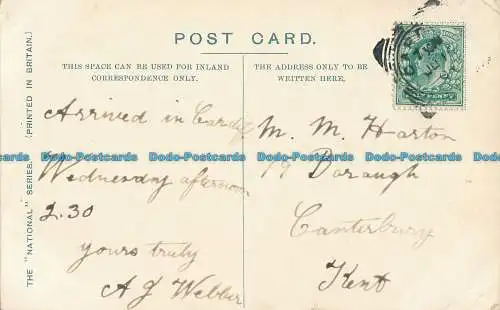 POST CARD.
THIS SPACE CAN BE USED FOR INLAND
CORRESPONDENCE ONLY.
THE ADDRESS ONLY TO BE
WRITTEN HERE.
THE "NATIONAL" SERIES. (PRINTED IN BRITAIN.)
Arrived in Cardiff
Wednesday afternoon
2.30
yours truly
A J Webber
M. M. Harton
Canterbury
Kent
Dodo-Postcards Dodo-Postcards Dodo-Postcards Dodo-Postcards